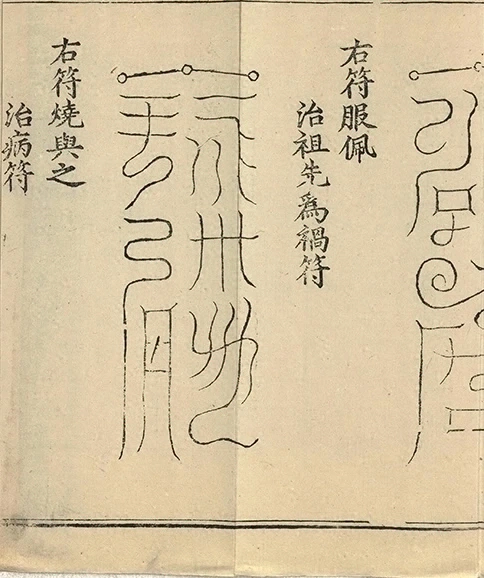 右符服佩
治祖先為禍符
右符燒與之
治病符